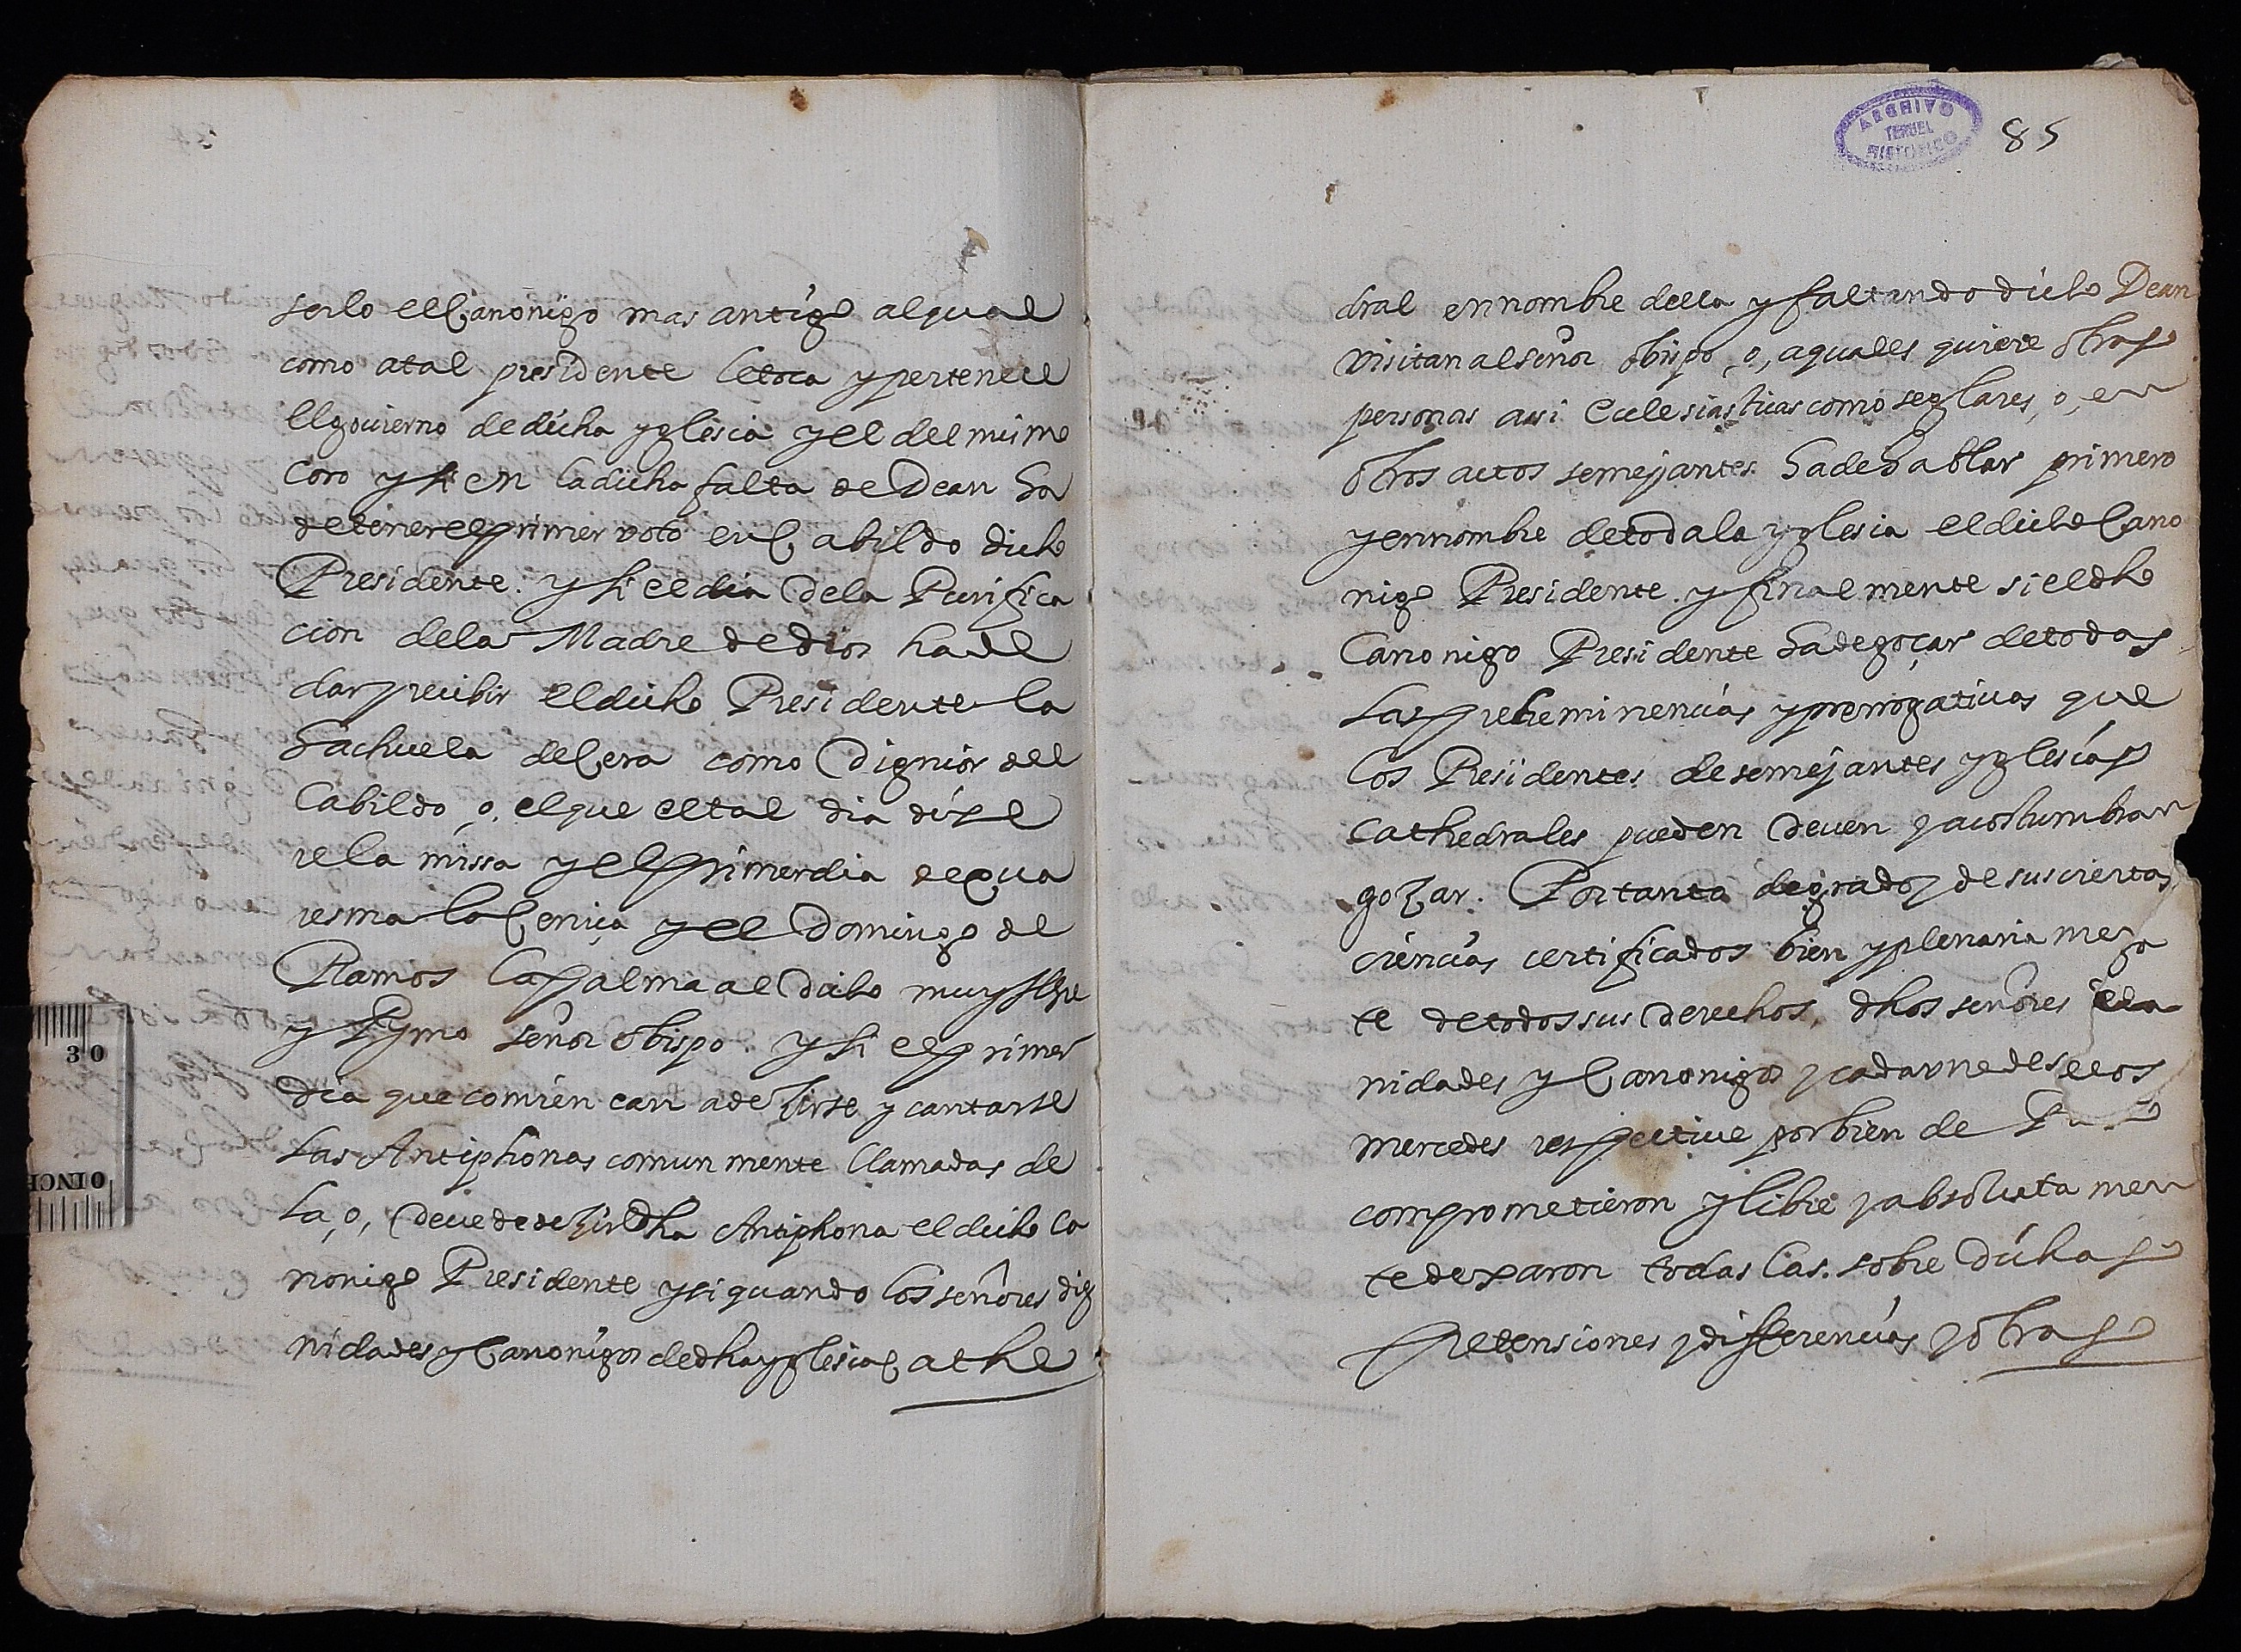 serlo el Canonigo mas antigo al qual
como a tal presidente le toca y pertenece
el gouierno de dicha yglesia y el del mismo
coro y si en la dicha falta de Dean ha
de tener el primer voto en Cabildo dicho
Presidente. y si el dia de la Purifica
cion de la Madre de dios ha de
dar y recibir el dicho Presidente la
hachuela de Cera como Dignior del
Cabildo, o, el que el tal dia dixe
re la missa y el primer dia de qua
resma la Ceniça y el Domingo de
Ramos la palma al dicho muy Illre
y Rymo señor obispo. y si el primer
dia que comiençan a dezirse y cantarse
las Antiphonas comunmente llamadas de
la, o, deue de dezir dha Antiphona el dicho Ca
nonigo Presidente y si quando los señores dig
nidades y Canonigos de dha yglesia Cathe
85
ARCHIVO
TERUEL
HISTORICO
dral en nombre della y faltando dicho Dean
visitan al señor obispo, o, a quales quiere otras
personas assi Eclesiasticas como seglares, o, en
otros actos semejantes. ha de hablar primero
y en nombre de toda la yglesia el dicho Cano
nigo Presidente. y finalmente si el dho
Canonigo Presidente ha de goçar de todas
las preheminencias y prerrogatiuas que
los Presidentes de semejantes yglesias
Cathedrales pueden deuen y acostumbran
gozar. Por tanto de grado y de sus ciertas
ciencias certificados bien y plenariamen
te de todos sus derechos, dhos señores
nidades y Canonigos y cada vne de ellos
mercedes respectiue por bien de
comprometieron y libre y absolutamen
te dexaron todas las sobre dichas
pretensiones y differencias y otras